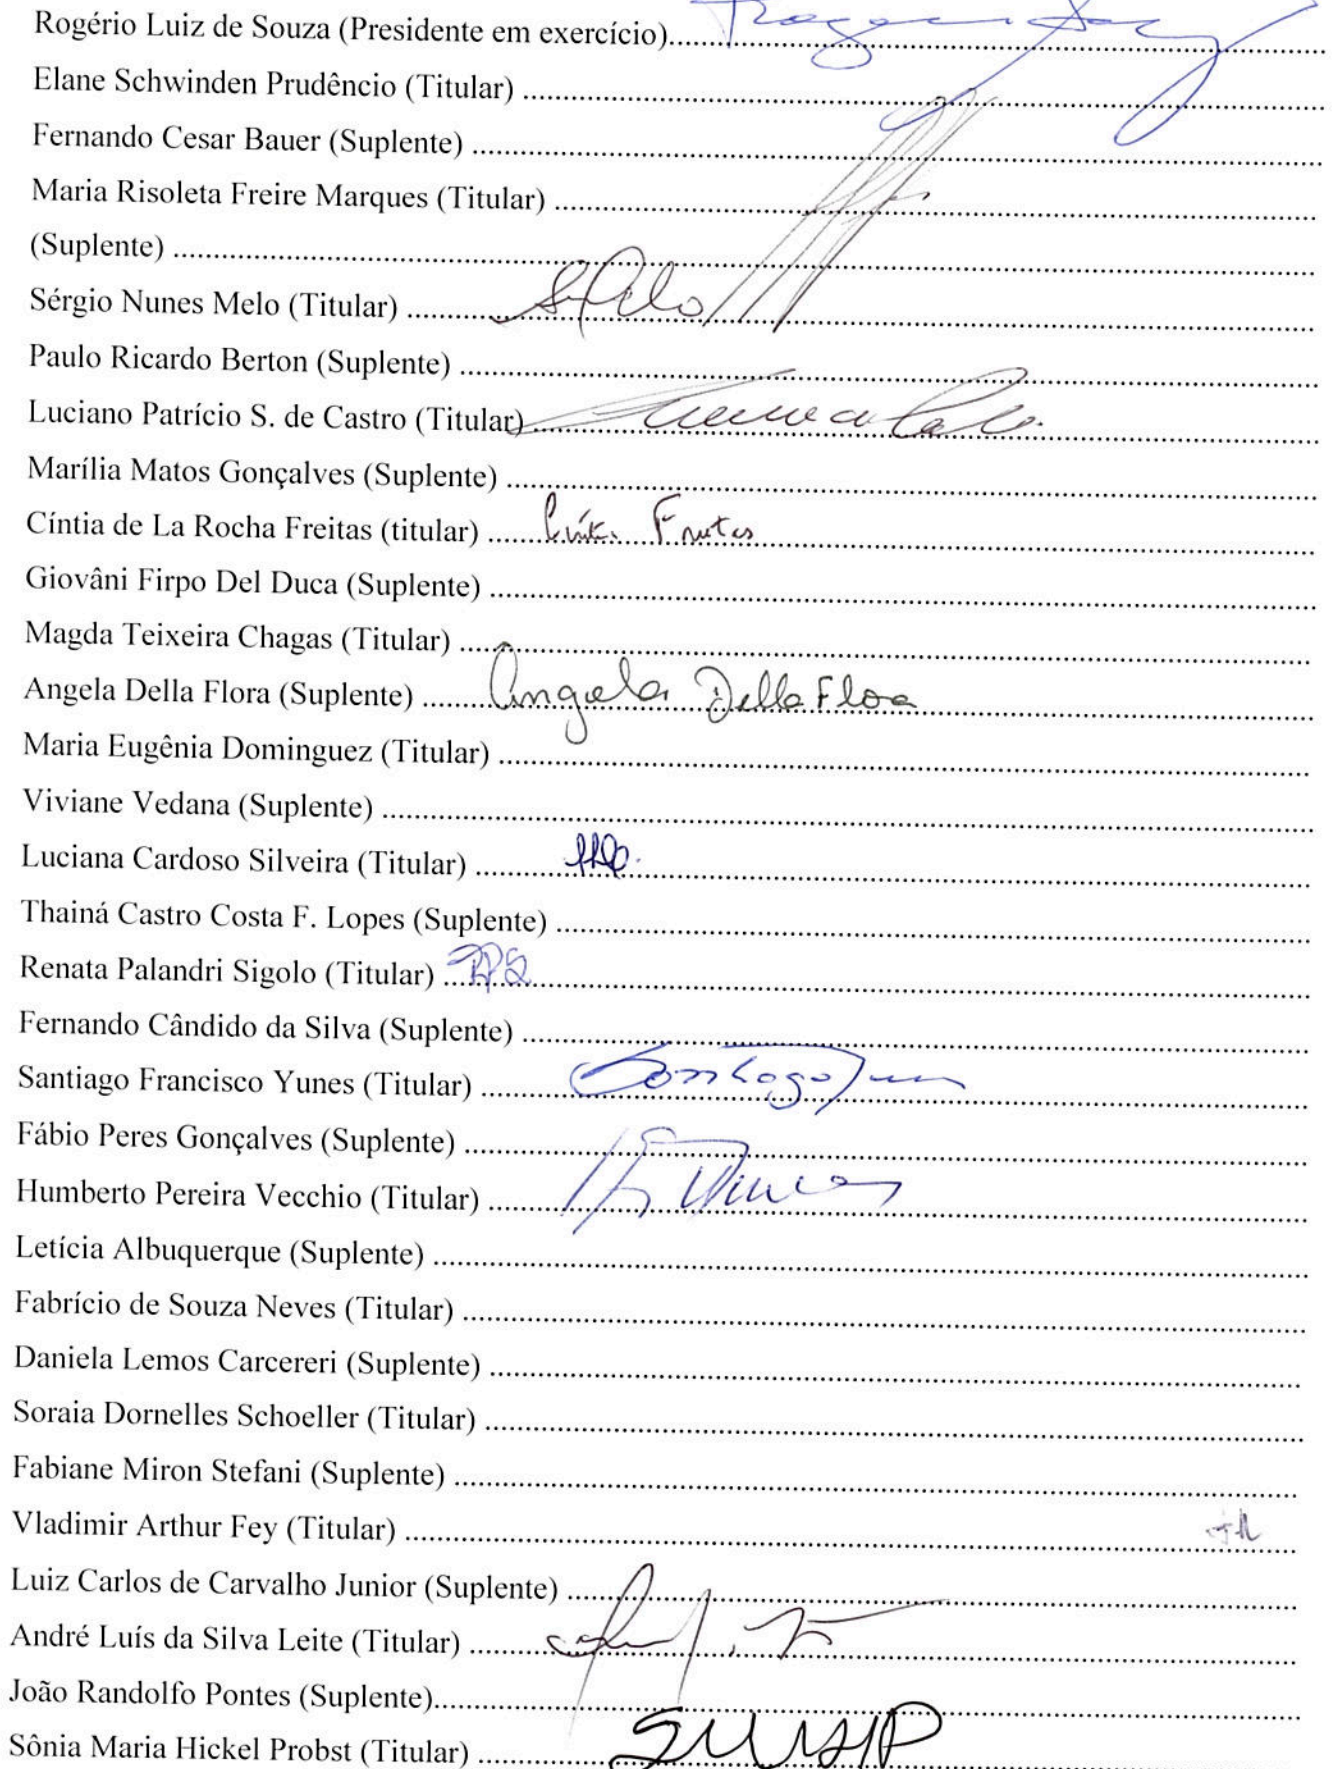 Rogério Luiz de Souza (Presidente em exercício)..........
Elane Schwinden Prudêncio (Titular) ..........
Fernando Cesar Bauer (Suplente) ..........
Maria Risoleta Freire Marques (Titular) ..........
(Suplente) ..........
Sérgio Nunes Melo (Titular) ..........
Paulo Ricardo Berton (Suplente) ..........
Luciano Patrício S. de Castro (Titular) ..........
Marília Matos Gonçalves (Suplente) ..........
Cíntia de La Rocha Freitas (titular) .......... Cíntia Freitas
Giovâni Firpo Del Duca (Suplente) ..........
Magda Teixeira Chagas (Titular) ..........
Angela Della Flora (Suplente) .......... Angela Della Flora
Maria Eugênia Dominguez (Titular) ..........
Viviane Vedana (Suplente) ..........
Luciana Cardoso Silveira (Titular) ..........
Thainá Castro Costa F. Lopes (Suplente) ..........
Renata Palandri Sigolo (Titular) .......... RPS
Fernando Cândido da Silva (Suplente) ..........
Santiago Francisco Yunes (Titular) .......... Santiago
Fábio Peres Gonçalves (Suplente) ..........
Humberto Pereira Vecchio (Titular) ..........
Letícia Albuquerque (Suplente) ..........
Fabrício de Souza Neves (Titular) ..........
Daniela Lemos Carcereri (Suplente) ..........
Soraia Dornelles Schoeller (Titular) ..........
Fabiane Miron Stefani (Suplente) ..........
Vladimir Arthur Fey (Titular) ..........
Luiz Carlos de Carvalho Junior (Suplente) ..........
André Luís da Silva Leite (Titular) ..........
João Randolfo Pontes (Suplente)..........
Sônia Maria Hickel Probst (Titular) ..........